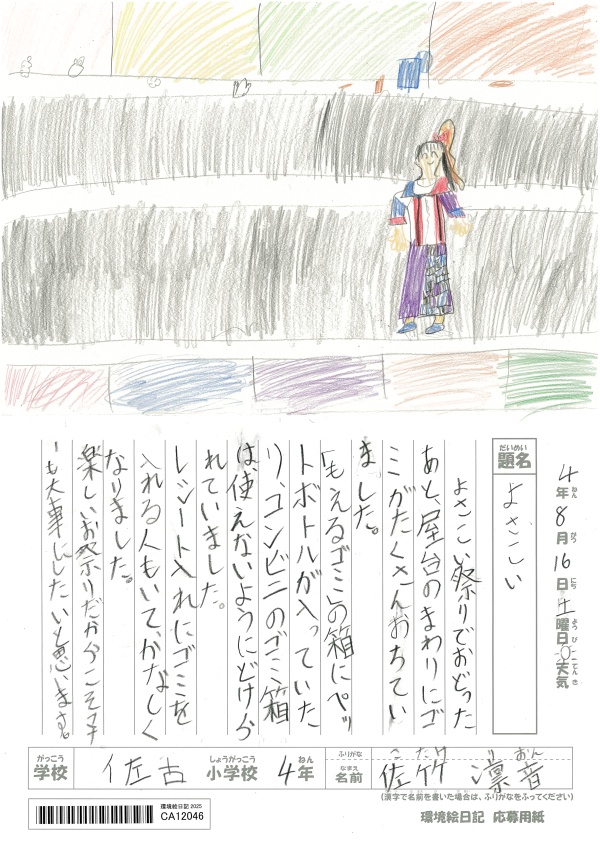 4年8月16日土曜日 天気
ねん がつ にち ようび てんき
だいめい
題名
よさこい
よさこい祭りでおどった
あと、屋台のまわりにゴ
ミがたくさんおちてい
ました。
「もえるゴミ」の箱にペッ
トボトルが入っていた
り、コンビニのゴミ箱
は、使えないようにどけら
れていました。
レシート入れにゴミを
入れる人もいて、かなしく
なりました。
楽しいお祭りだからこそマナ
ーも大事にしたいと思います。
がっこう しょうがっこう ねん
学校 佐古 小学校 4年
ふりがな たけ り おん
なまえ
名前 佐竹 凛音
(漢字で名前を書いた場合は、ふりがなをふってください)
環境絵日記 応募用紙
環境絵日記 2025
CA12046